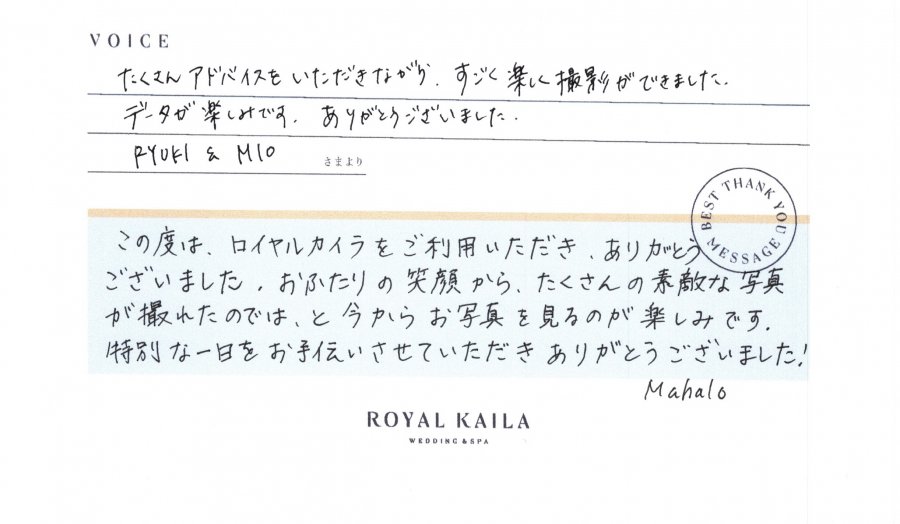 VOICE
たくさんアドバイスをいただきながら、すごく楽しく撮影ができました。
データが楽しみです。ありがとうございました。
RYUKI & MIO さまより
BEST THANK YOU MESSAGE
この度は、ロイヤルカイラをご利用いただき、ありがとう
ございました。おふたりの笑顔から、たくさんの素敵な写真
が撮れたのでは、と今からお写真を見るのが楽しみです。
特別な一日をお手伝いさせていただきありがとうございました!
Mahalo
ROYAL KAILA
WEDDING & SPA